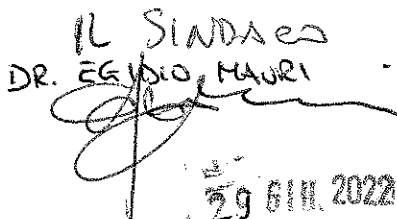 IL SINDACO
DR. EGIDIO MAURI
29 GIU. 2022